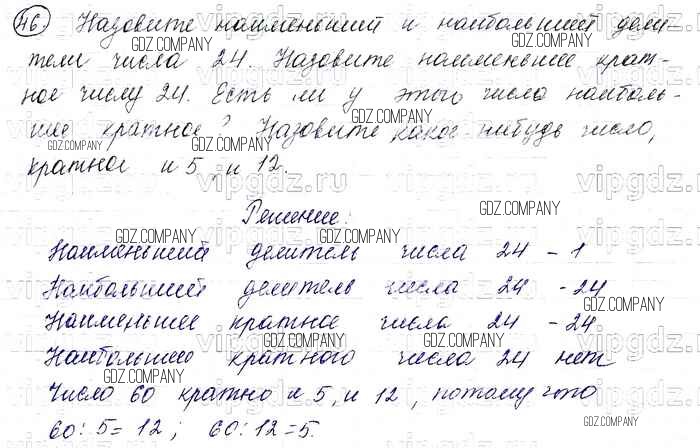 46. Назовите наименьший и наибольший дели-
тели числа 24. Назовите наименьшее крат-
ное числу 24. Есть ли у этого числа наиболь-
шее кратное? Назовите какое-нибудь число,
кратное и 5, и 12.
Решение:
Наименьший делитель числа 24 - 1
Наибольший делитель числа 24 - 24
Наименьшее кратное числа 24 - 24
Наибольшего кратного числа 24 нет
Число 60 кратно и 5, и 12, потому что
60:5=12; 60:12=5.
GDZ.COMPANY
vipgdz.ru